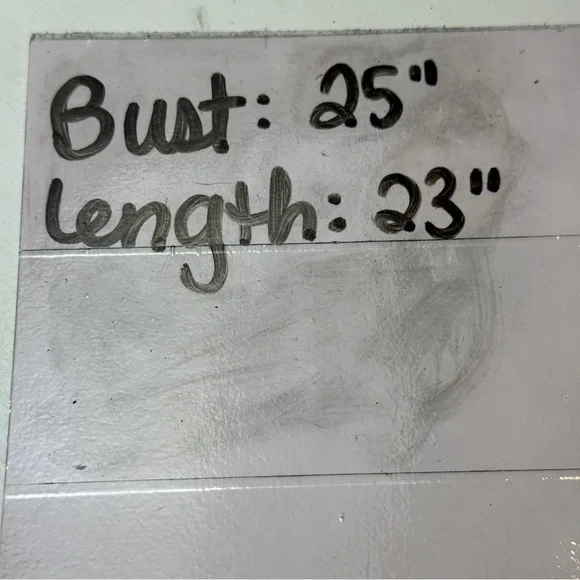 Bust: 25"
Length: 23"